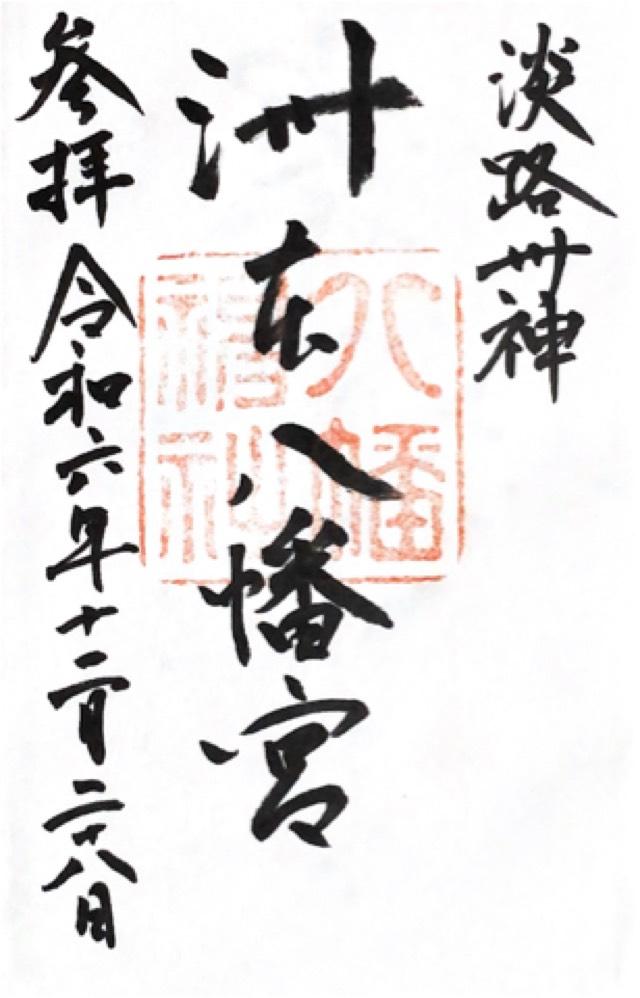 淡路卅神
洲本八幡宮
八幡神社
参拝 令和六年十二月二十八日